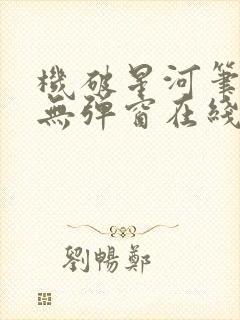 機破星河筆
無彈窗在綫
劉暢鄭